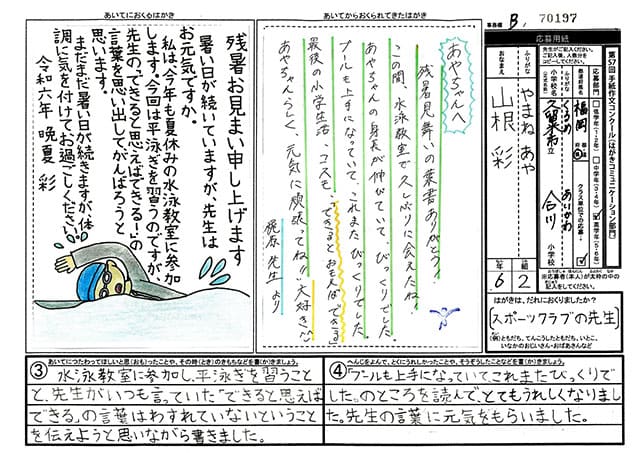 事務局 B, 70197
応募用紙
先生がご記入ください。
第57回 手紙作文コンクール(はがきコミュニケーション部門)
福岡
くるめ
久留米市立
ありかわ
合川
小学校
6年
2
ふりがな
やまね あや
おなまえ
山根 彩
はがきは、だれにおくりましたか?
スポーツクラブの先生
(例)ともだち、てんこうしたともだち、いとこ、
いなかのおじいさん・おばあさんなど
あいてからおくられてきたはがき
あやちゃんへ
残暑見舞いの葉書ありがとう!
この間、水泳教室で久しぶりに会えたね。
あやちゃんの身長が伸びていて、びっくりでした。
プールも上手になっていて、これまたびっくりでした。
最後の小学生活、コスモ、"できるとおもえばできる!"
あやちゃんらしく、元気に頑張ってね!!大好き
梶原 先生より
あいてにおくるはがき
残暑お見まい申し上げます
暑い日が続いていますが、先生は
お元気ですか。
私は、今年も夏休みの水泳教室に参加
します。今回は平泳ぎを習うのですが、
先生の、できると思えばできる!の
言葉を思い出してがんばろうと
思います。
まだまだ暑い日が続きますが、体
調に気を付けてお過ごしください。
令和六年 晩夏 彩
あいてにつたわってほしいと思(おも)ったことや、その時(とき)のきもちなどを書(か)きましょう。
③ 水泳教室に参加し、平泳ぎを習うこと
と、先生がいつも言っていた"できると思えば
できる"の言葉はわすれていないということ
を伝えようと思いながら書きました。
へんじをよんで、とくにうれしかったことや、そうぞうしたことなどを書(か)きましょう。
④「プールも上手になっていて、これまたびっくりで
した。」のところを読んで、とてもうれしくなりまし
た。先生の言葉に元気をもらいました。